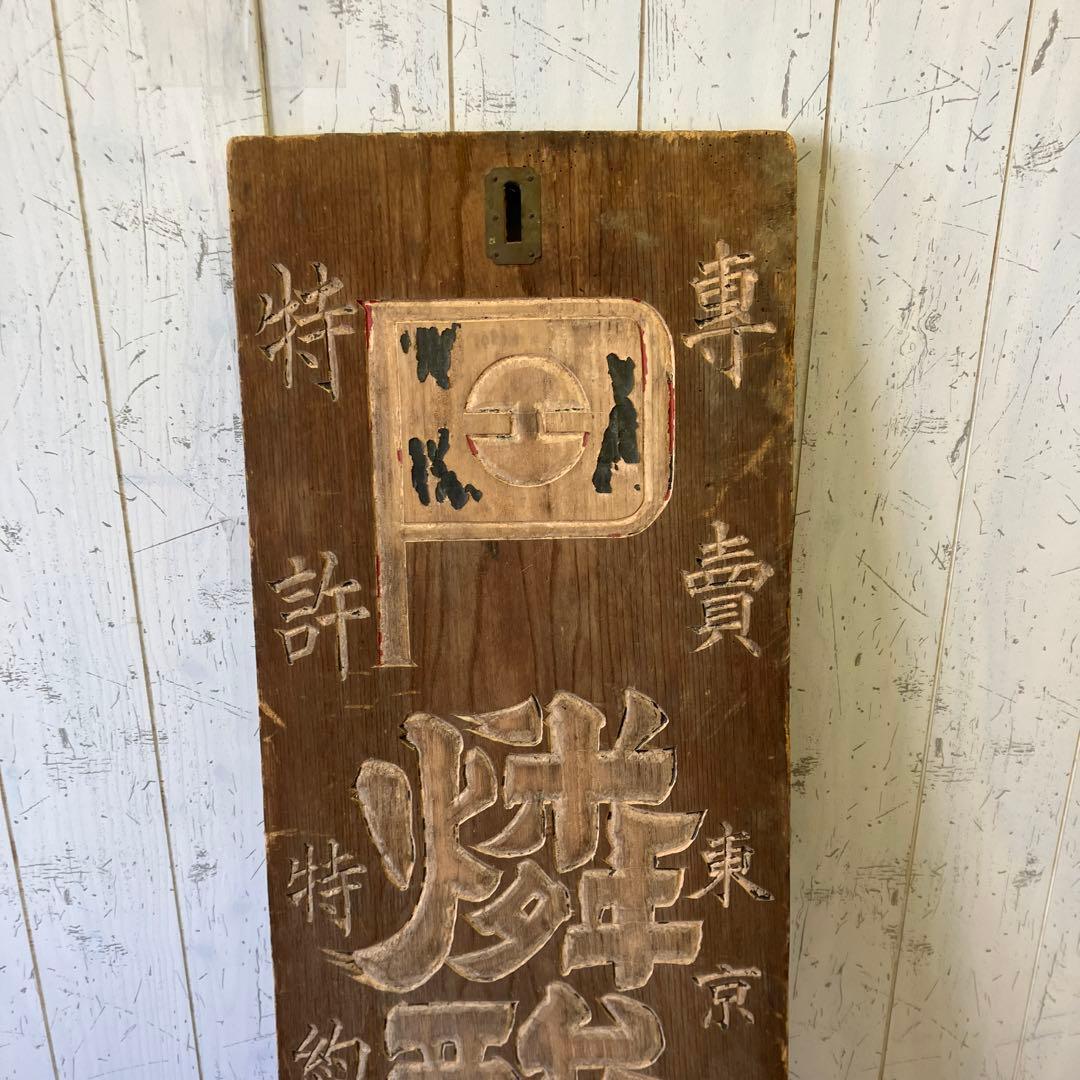 專賣
特許
燐酸
東京
特約